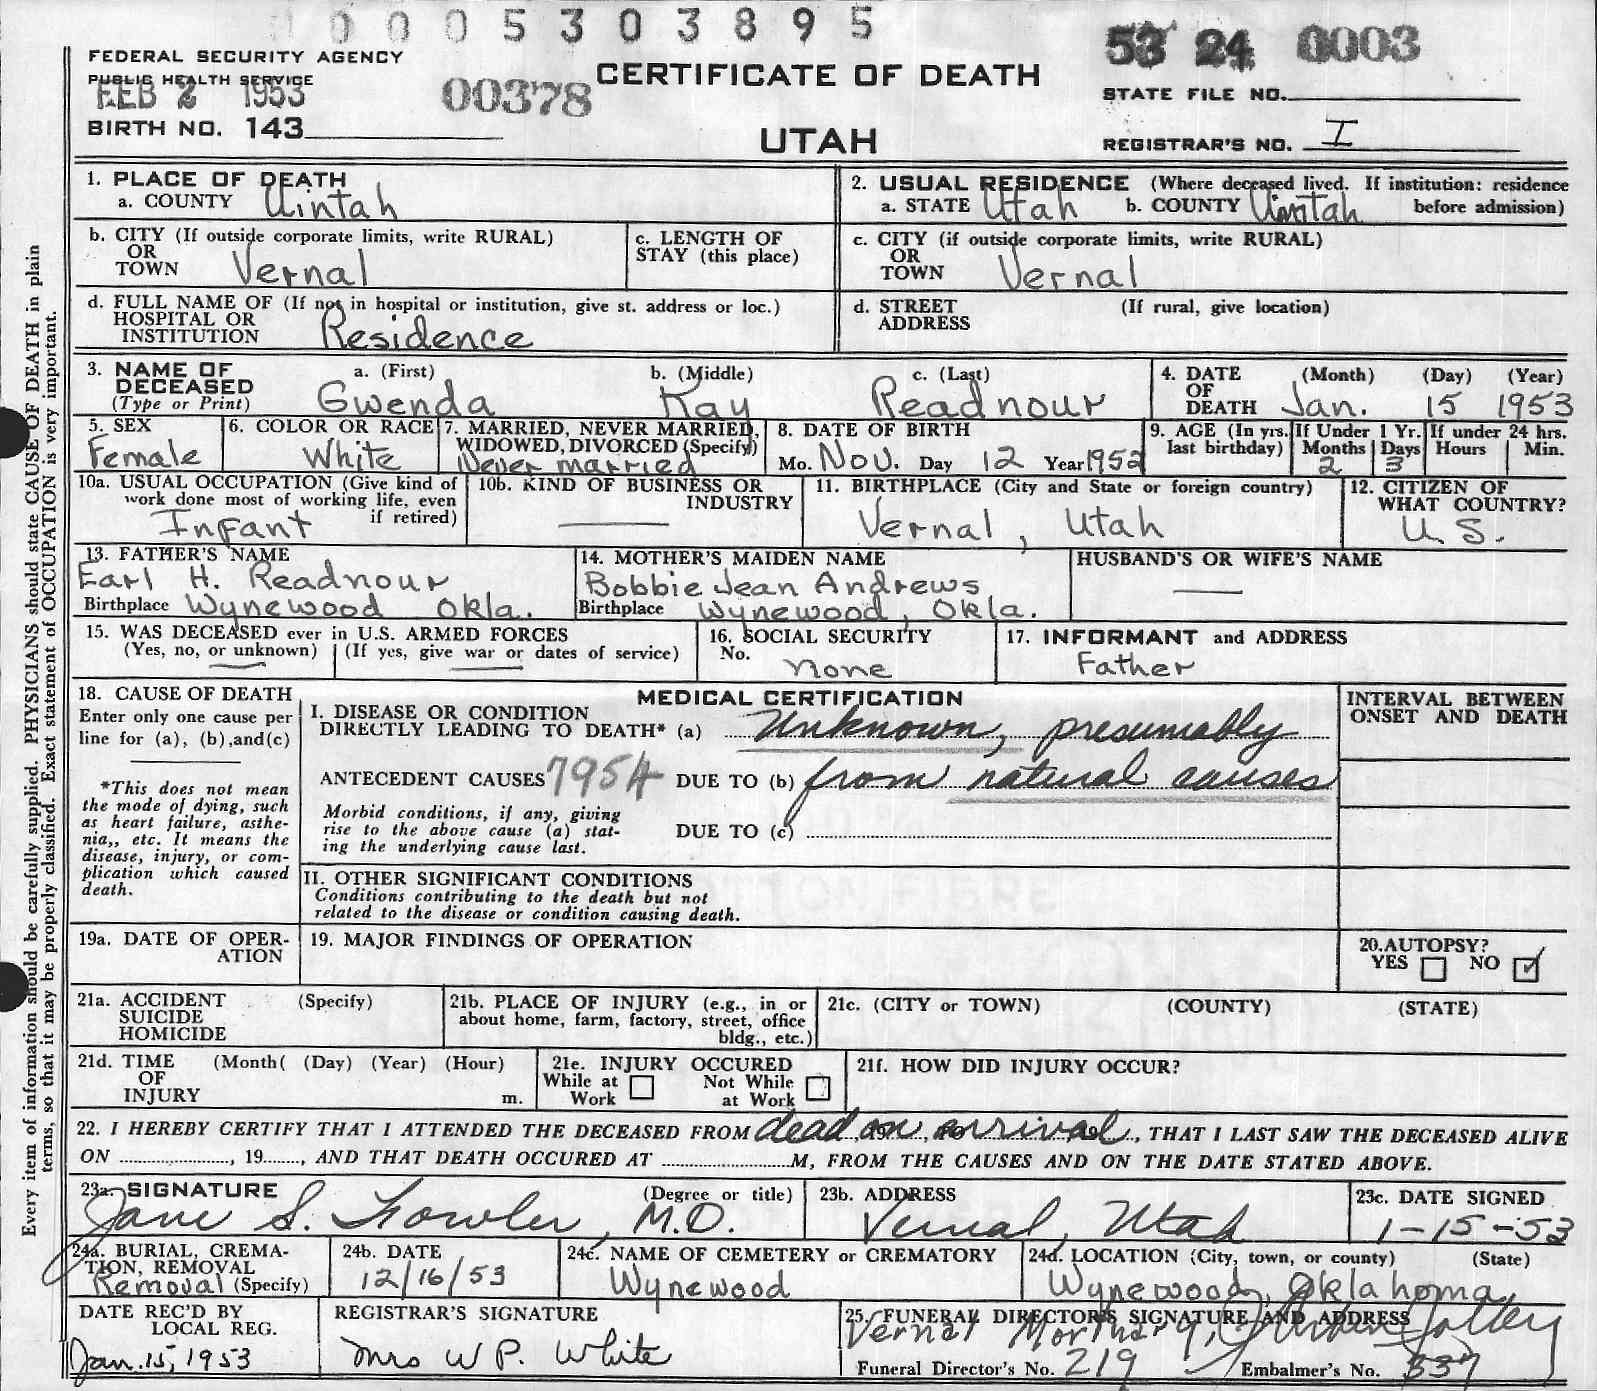 0005303895
FEDERAL SECURITY AGENCY
PUBLIC HEALTH SERVICE
FEB 2 1953
BIRTH NO. 143
00378
CERTIFICATE OF DEATH
UTAH
53 24 0003
STATE FILE NO.
REGISTRAR'S NO. I
Every item of information should be carefully supplied. PHYSICIANS should state CAUSE OF DEATH in plain
terms, so that it may be properly classified. Exact statement of OCCUPATION is very important.
1. PLACE OF DEATH
a. COUNTY Uintah
2. USUAL RESIDENCE (Where deceased lived. If institution: residence
a. STATE Utah b. COUNTY Uintah before admission)
b. CITY (If outside corporate limits, write RURAL)
OR
TOWN Vernal
c. LENGTH OF
STAY (this place)
c. CITY (if outside corporate limits, write RURAL)
OR
TOWN Vernal
d. FULL NAME OF (If not in hospital or institution, give st. address or loc.)
HOSPITAL OR
INSTITUTION Residence
d. STREET (If rural, give location)
ADDRESS
3. NAME OF a. (First) b. (Middle) c. (Last)
DECEASED
(Type or Print) Gwenda Kay Readnour
4. DATE (Month) (Day) (Year)
OF
DEATH Jan. 15 1953
5. SEX
Female
6. COLOR OR RACE
White
7. MARRIED, NEVER MARRIED,
WIDOWED, DIVORCED (Specify)
Never married
8. DATE OF BIRTH
Mo. Nov. Day 12 Year 1952
9. AGE (In yrs.
last birthday)
If Under 1 Yr.
Months Days
2 3
If under 24 hrs.
Hours Min.
10a. USUAL OCCUPATION (Give kind of
work done most of working life, even
if retired)
Infant
10b. KIND OF BUSINESS OR
INDUSTRY
11. BIRTHPLACE (City and State or foreign country)
Vernal, Utah
12. CITIZEN OF
WHAT COUNTRY?
U.S.
13. FATHER'S NAME
Earl H. Readnour
Birthplace Wynewood Okla.
14. MOTHER'S MAIDEN NAME
Bobbie Jean Andrews
Birthplace Wynewood, Okla.
HUSBAND'S OR WIFE'S NAME
15. WAS DECEASED ever in U.S. ARMED FORCES
(Yes, no, or unknown) (If yes, give war or dates of service)
16. SOCIAL SECURITY
No.
none
17. INFORMANT and ADDRESS
Father
18. CAUSE OF DEATH
Enter only one cause per
line for (a), (b), and (c)
*This does not mean
the mode of dying, such
as heart failure, asthe-
nia,, etc. It means the
disease, injury, or com-
plication which caused
death.
MEDICAL CERTIFICATION
I. DISEASE OR CONDITION
DIRECTLY LEADING TO DEATH* (a) Unknown, presumably
ANTECEDENT CAUSES 7954 DUE TO (b) from natural causes
Morbid conditions, if any, giving
rise to the above cause (a) stat-
ing the underlying cause last.
DUE TO (c)
INTERVAL BETWEEN
ONSET AND DEATH
II. OTHER SIGNIFICANT CONDITIONS
Conditions contributing to the death but not
related to the disease or condition causing death.
19a. DATE OF OPER-
ATION
19. MAJOR FINDINGS OF OPERATION
20. AUTOPSY?
YES NO
21a. ACCIDENT (Specify)
SUICIDE
HOMICIDE
21b. PLACE OF INJURY (e.g., in or
about home, farm, factory, street, office
bldg., etc.)
21c. (CITY or TOWN) (COUNTY) (STATE)
21d. TIME (Month( (Day) (Year) (Hour)
OF
INJURY m.
21e. INJURY OCCURED
While at Not While
Work at Work
21f. HOW DID INJURY OCCUR?
22. I HEREBY CERTIFY THAT I ATTENDED THE DECEASED FROM dead on arrival, THAT I LAST SAW THE DECEASED ALIVE
ON , 19 , AND THAT DEATH OCCURED AT M, FROM THE CAUSES AND ON THE DATE STATED ABOVE.
23a. SIGNATURE (Degree or title)
Jane S. Fowler, M.D.
23b. ADDRESS
Vernal, Utah
23c. DATE SIGNED
1-15-53
24a. BURIAL, CREMA-
TION, REMOVAL
Removal (Specify)
24b. DATE
12/16/53
24c. NAME OF CEMETERY or CREMATORY
Wynewood
24d. LOCATION (City, town, or county) (State)
Wynewood, Oklahoma
DATE REC'D BY
LOCAL REG.
Jan. 15, 1953
REGISTRAR'S SIGNATURE
Mrs W P. White
25. FUNERAL DIRECTOR'S SIGNATURE AND ADDRESS
Vernal Mortuary,
Funeral Director's No. 219 Embalmer's No. 337